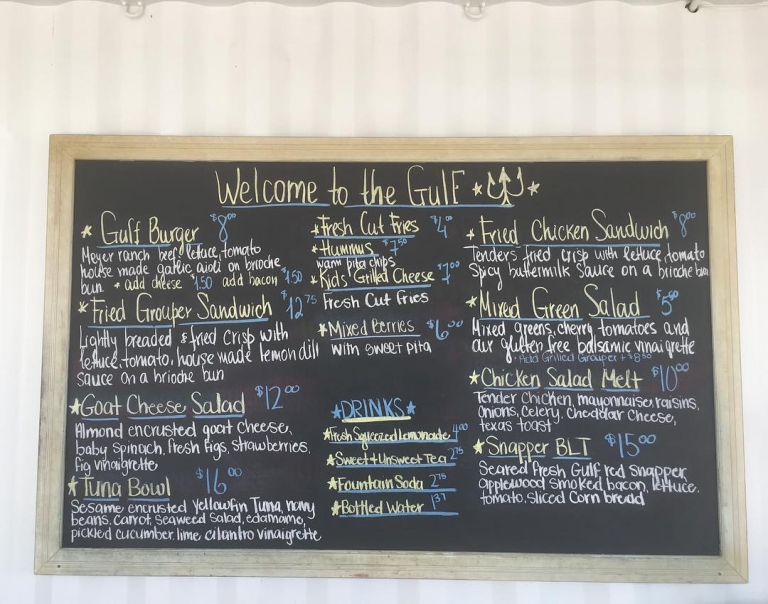 Welcome to the Gulf
Gulf Burger $8.00
Meyer ranch beef, lettuce, tomato
house made garlic aioli on brioche
bun * add cheese $1.50 add bacon $1.50
Fried Grouper Sandwich $12.75
Lightly breaded & fried crisp with
lettuce, tomato, house made lemon dill
sauce on a brioche bun
Goat Cheese Salad $12.00
Almond encrusted goat cheese,
baby spinach, fresh figs, strawberries,
fig vinaigrette
Tuna Bowl $16.00
Sesame encrusted Yellowfin Tuna, navy
beans, carrot, seaweed salad, edamame,
pickled cucumber, lime cilantro vinaigrette
Fresh Cut Fries
Hummus $7.50
warm pita chips
Kids' Grilled Cheese $7.00
Fresh Cut Fries
Mixed Berries
with sweet pita
DRINKS
Fresh Squeezed Lemonade 4.00
Sweet & Unsweet Tea 2.75
Fountain Soda 2.75
Bottled Water
Fried Chicken Sandwich $8.00
Tenders fried crisp with lettuce, tomato
Spicy buttermilk sauce on a brioche bun
Mixed Green Salad
Mixed greens, cherry tomatoes and
our gluten free balsamic vinaigrette
Add Grilled Grouper +
Chicken Salad Melt $10.00
Tender chicken, mayonnaise, raisins,
onions, celery, cheddar cheese,
texas toast
Snapper BLT $15.00
Seared fresh Gulf red snapper,
applewood smoked bacon, lettuce,
tomato, sliced corn bread